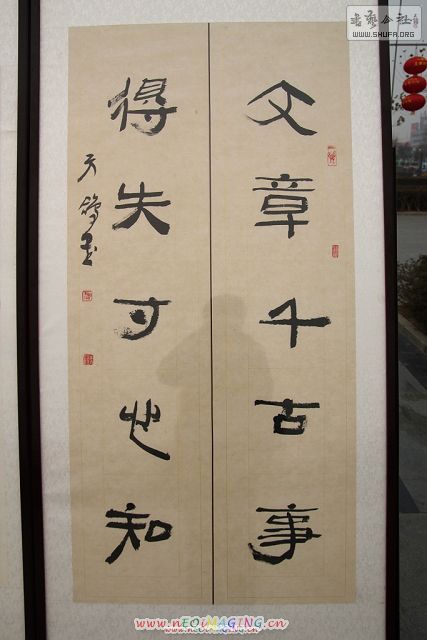 文章千古事
得失寸心知
書藝公社
WWW.SHUFA.ORG
www.nEOiMAGiNG.cn